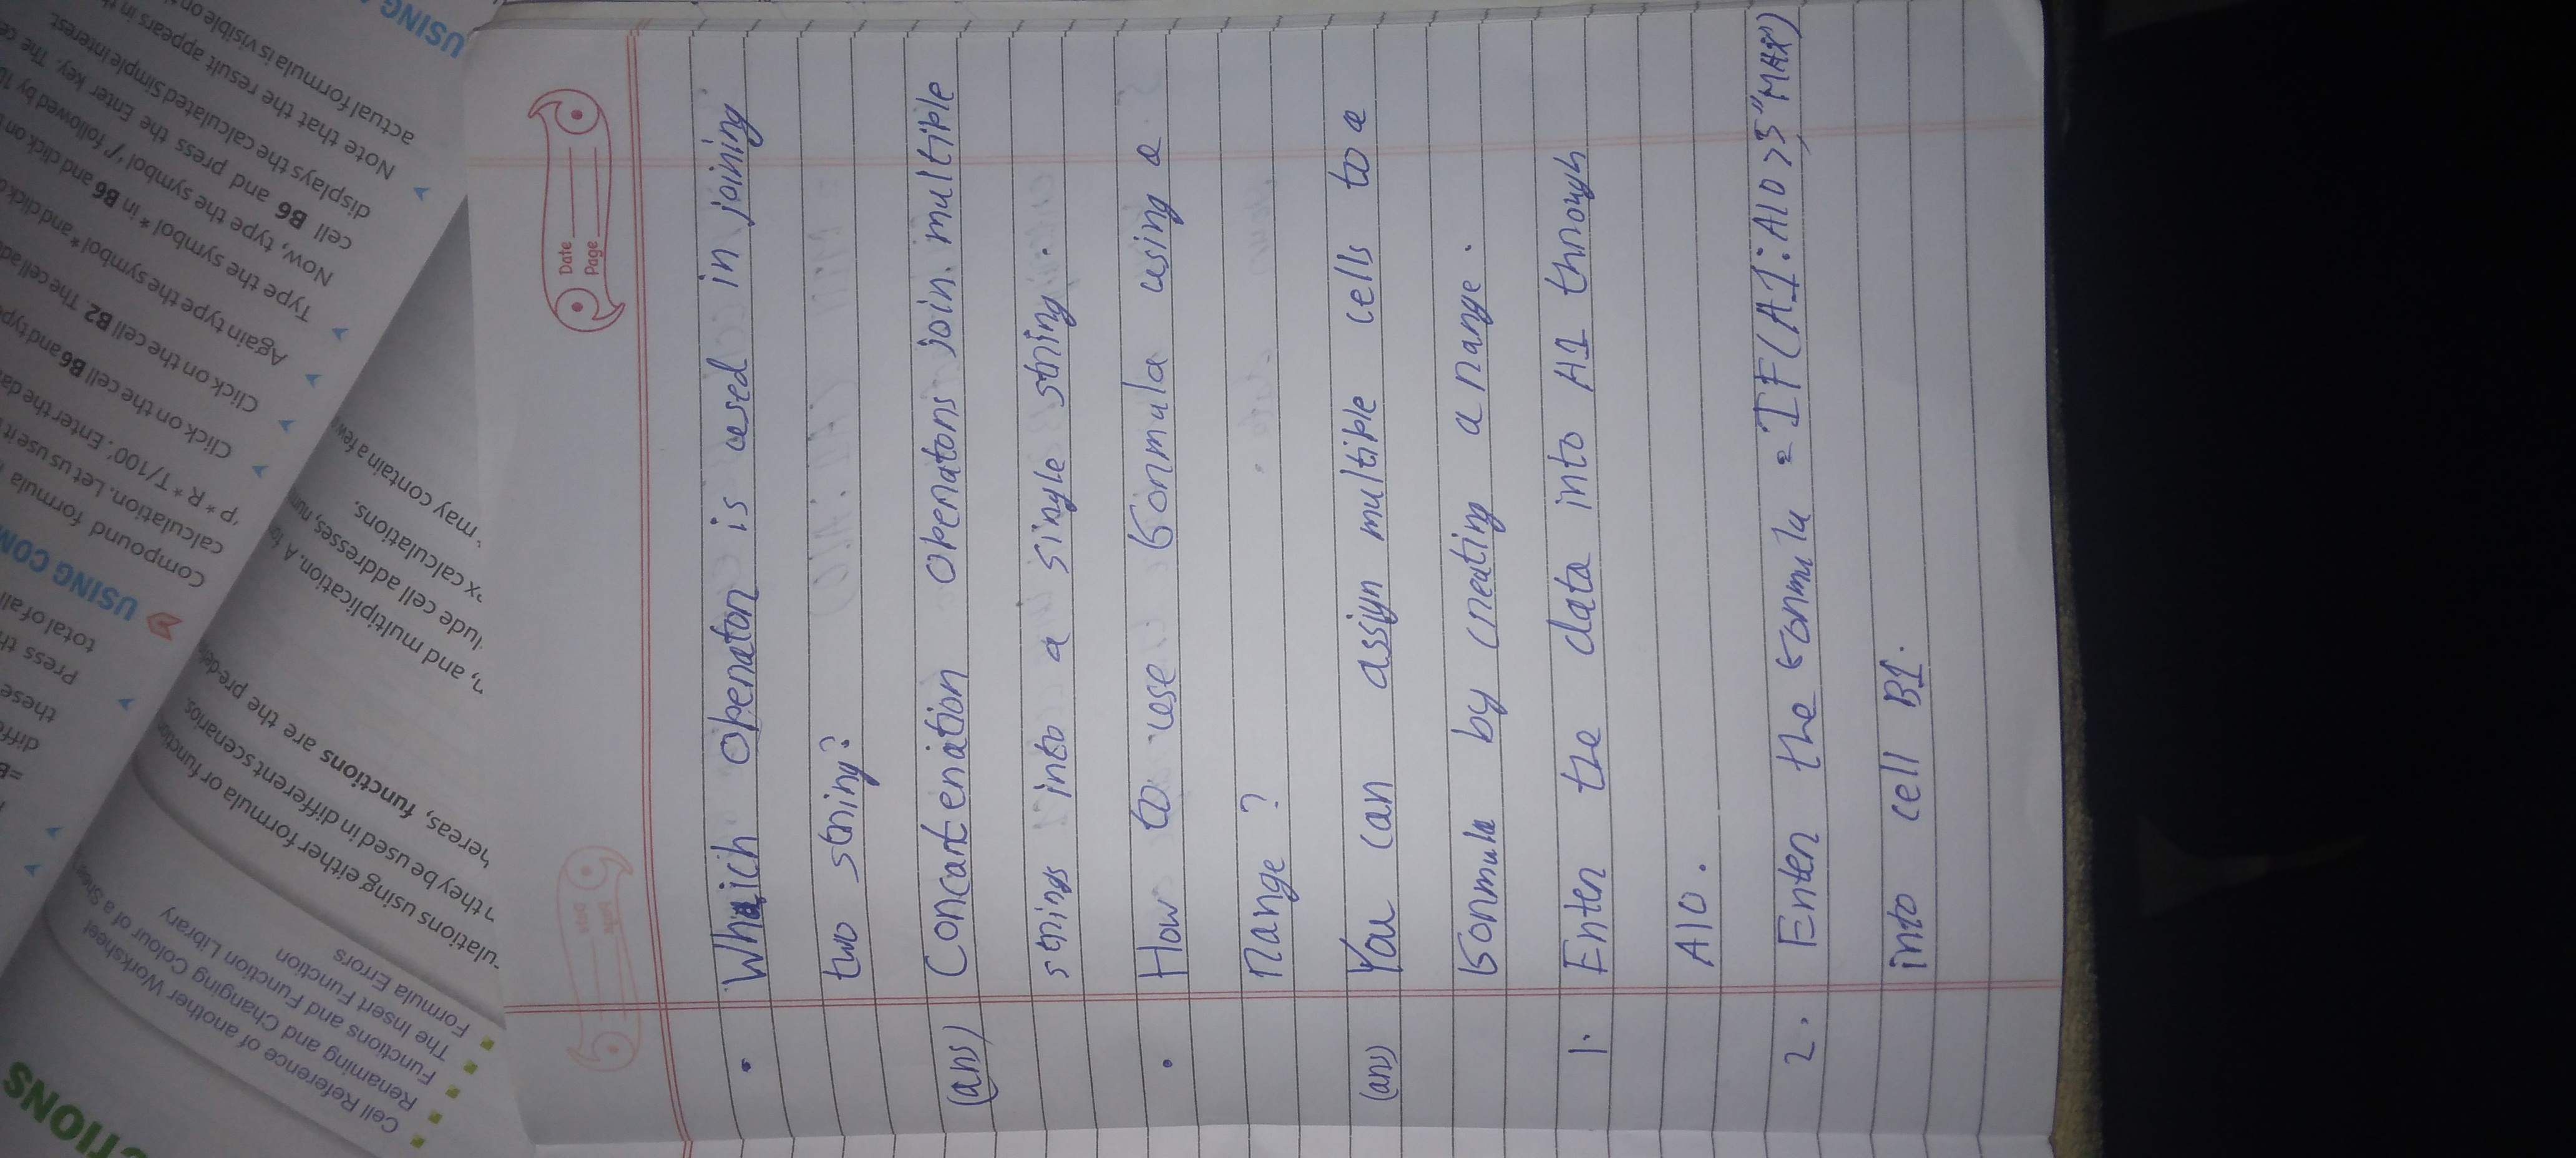 Date
Page
• Which operator is used in joining
two string?
(ans) Concatenation operators join multiple
strings into a single string.
• How to use formula using a
range?
(ans) You can assign multiple cells to a
formula by creating a range.
1. Enter the data into A1 through
A10.
2. Enter the formula = IF(A1:A10>3,"MAX")
into cell B1.
Cell Reference of another Worksheet
Renaming and Changing Colour of a Shee
Functions and Function Library
The Insert Function
Formula Errors
ulations using either formula or function
n they be used in different scenarios.
hereas, functions are the pre-de
n, and multiplication. A fo
lude cell addresses, num
x calculations.
may contain a few
total of all
Press th
these
diffe
USING COM
Compound formula
calculation. Let us use it
'P * R * T/100'. Enter the da
Click on the cell B6 and type
Click on the cell B2. The cell ad
Again type the symbol * and click
Type the symbol * in B6 and click on
Now, type the symbol '/' followed by 10
cell B6 and press the Enter key. The ce
displays the calculated Simple Interest.
Note that the result appears in th
actual formula is visible on
USING